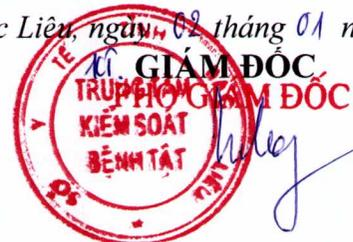 c Liêu, ngày 02 tháng 01 n
KT GIÁM ĐỐC
PHÓ GIÁM ĐỐC
TRUNG TÂM
KIỂM SOÁT
BỆNH TẬT
SỞ Y TẾ TỈNH LIÊU